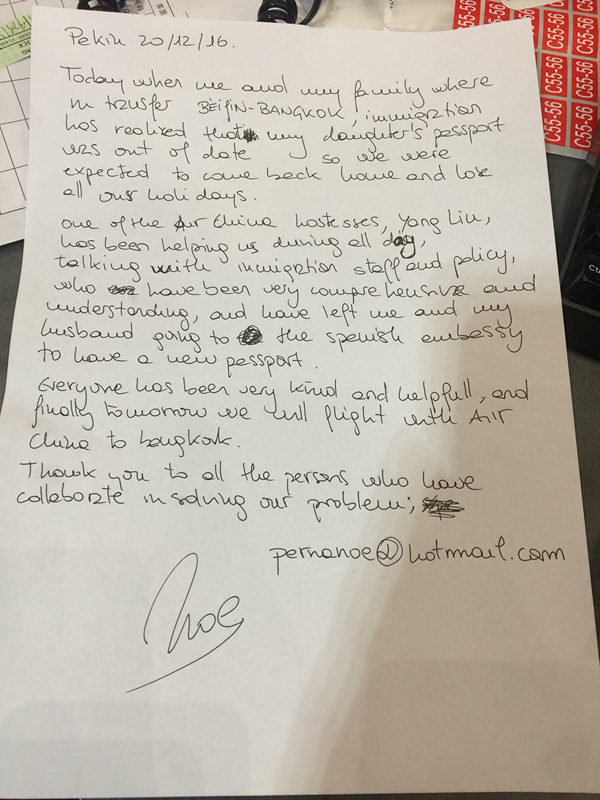 Pekin 20/12/16.
Today when me and my family where
in transfer BEIJIN-BANGKOK, immigration
has realized that my daughter's passport
was out of date so we were
expected to come back home and lose
all our holidays.
One of the Air China hostesses, Yang Liu,
has been helping us during all day,
talking with inmigration staff and policy,
who have been very comprehensive and
understanding, and have left me and my
husband going to the spenish embassy
to have a new passport.
Everyone has been very kind and helpfull, and
finally tomorrow we will flight with Air
China to bangkok.
Thank you to all the persons who have
collaborate in solving our problem;
pernanoe@hotmail.com
Noe
C55-56
C55-56
C55-56
C55-56
C55-56
C55-56
C55-56
C55-56
C55-56
C55-56
C55-56
C55-56